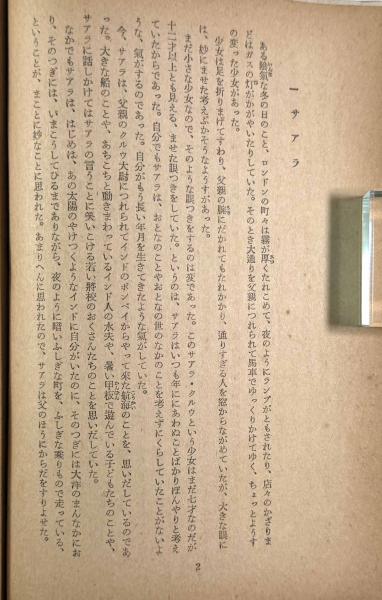 一　サアラ
ある陰氣な冬の日のこと、ロンドンの町々は霧が厚くたれこめて、夜のようにランプがともされたり、店々のかざりま
どはガスの灯がかがやいたりしていた。そのとき大通りを父親につれられて馬車でゆっくりかけてゆく、ちょっとようす
の変った少女があった。
少女は足を折りまげてすわり、父親の腕にだかれてもたれかかり、通りすぎる人を窓からながめていたが、大きな眼に
は、妙にませた考えぶかそうなようすがあった。
まだ小さな少女なので、そのような眼つきをするのは変であった。このサアラ・クルウという少女はまだ七才なのだが
十二才以上とも見える、ませた眼つきをしていた。というのは、サアラはいつも年ににあわぬことばかりぼんやりと考え
ていたからであった。自分でもサアラは、おとなのことやおとなの世のなかのことを考えずにくらしていたことがないよ
うな、氣がするのであった。自分がもう長い年月を生きてきたような氣がしていた。
今、サアラは、父親のクルウ大尉につれられてインドのボンベイからやって来た航海のことを、思いだしているのであ
った。大きな船のことや、あちこちと動きまわっているインド人の水夫や、暑い甲板で遊んでいる子どもたちのことや、
サアラに話しかけてはサアラの言うことに笑いこける若い將校のおくさんたちのことを思いだしていた。
なかでもサアラは、はじめは、あの太陽のやけつくようなインドに自分がいたのに、そのつぎには大洋のまんなかにお
り、そのつぎには、いまこうしてひるまでありながら、夜のように暗いふしぎな町を、ふしぎな乘りもので走っている、
ということが、まことに妙なことに思われた。あまりへんに思われたので、サアラは父のほうにからだをすりよせた。
2